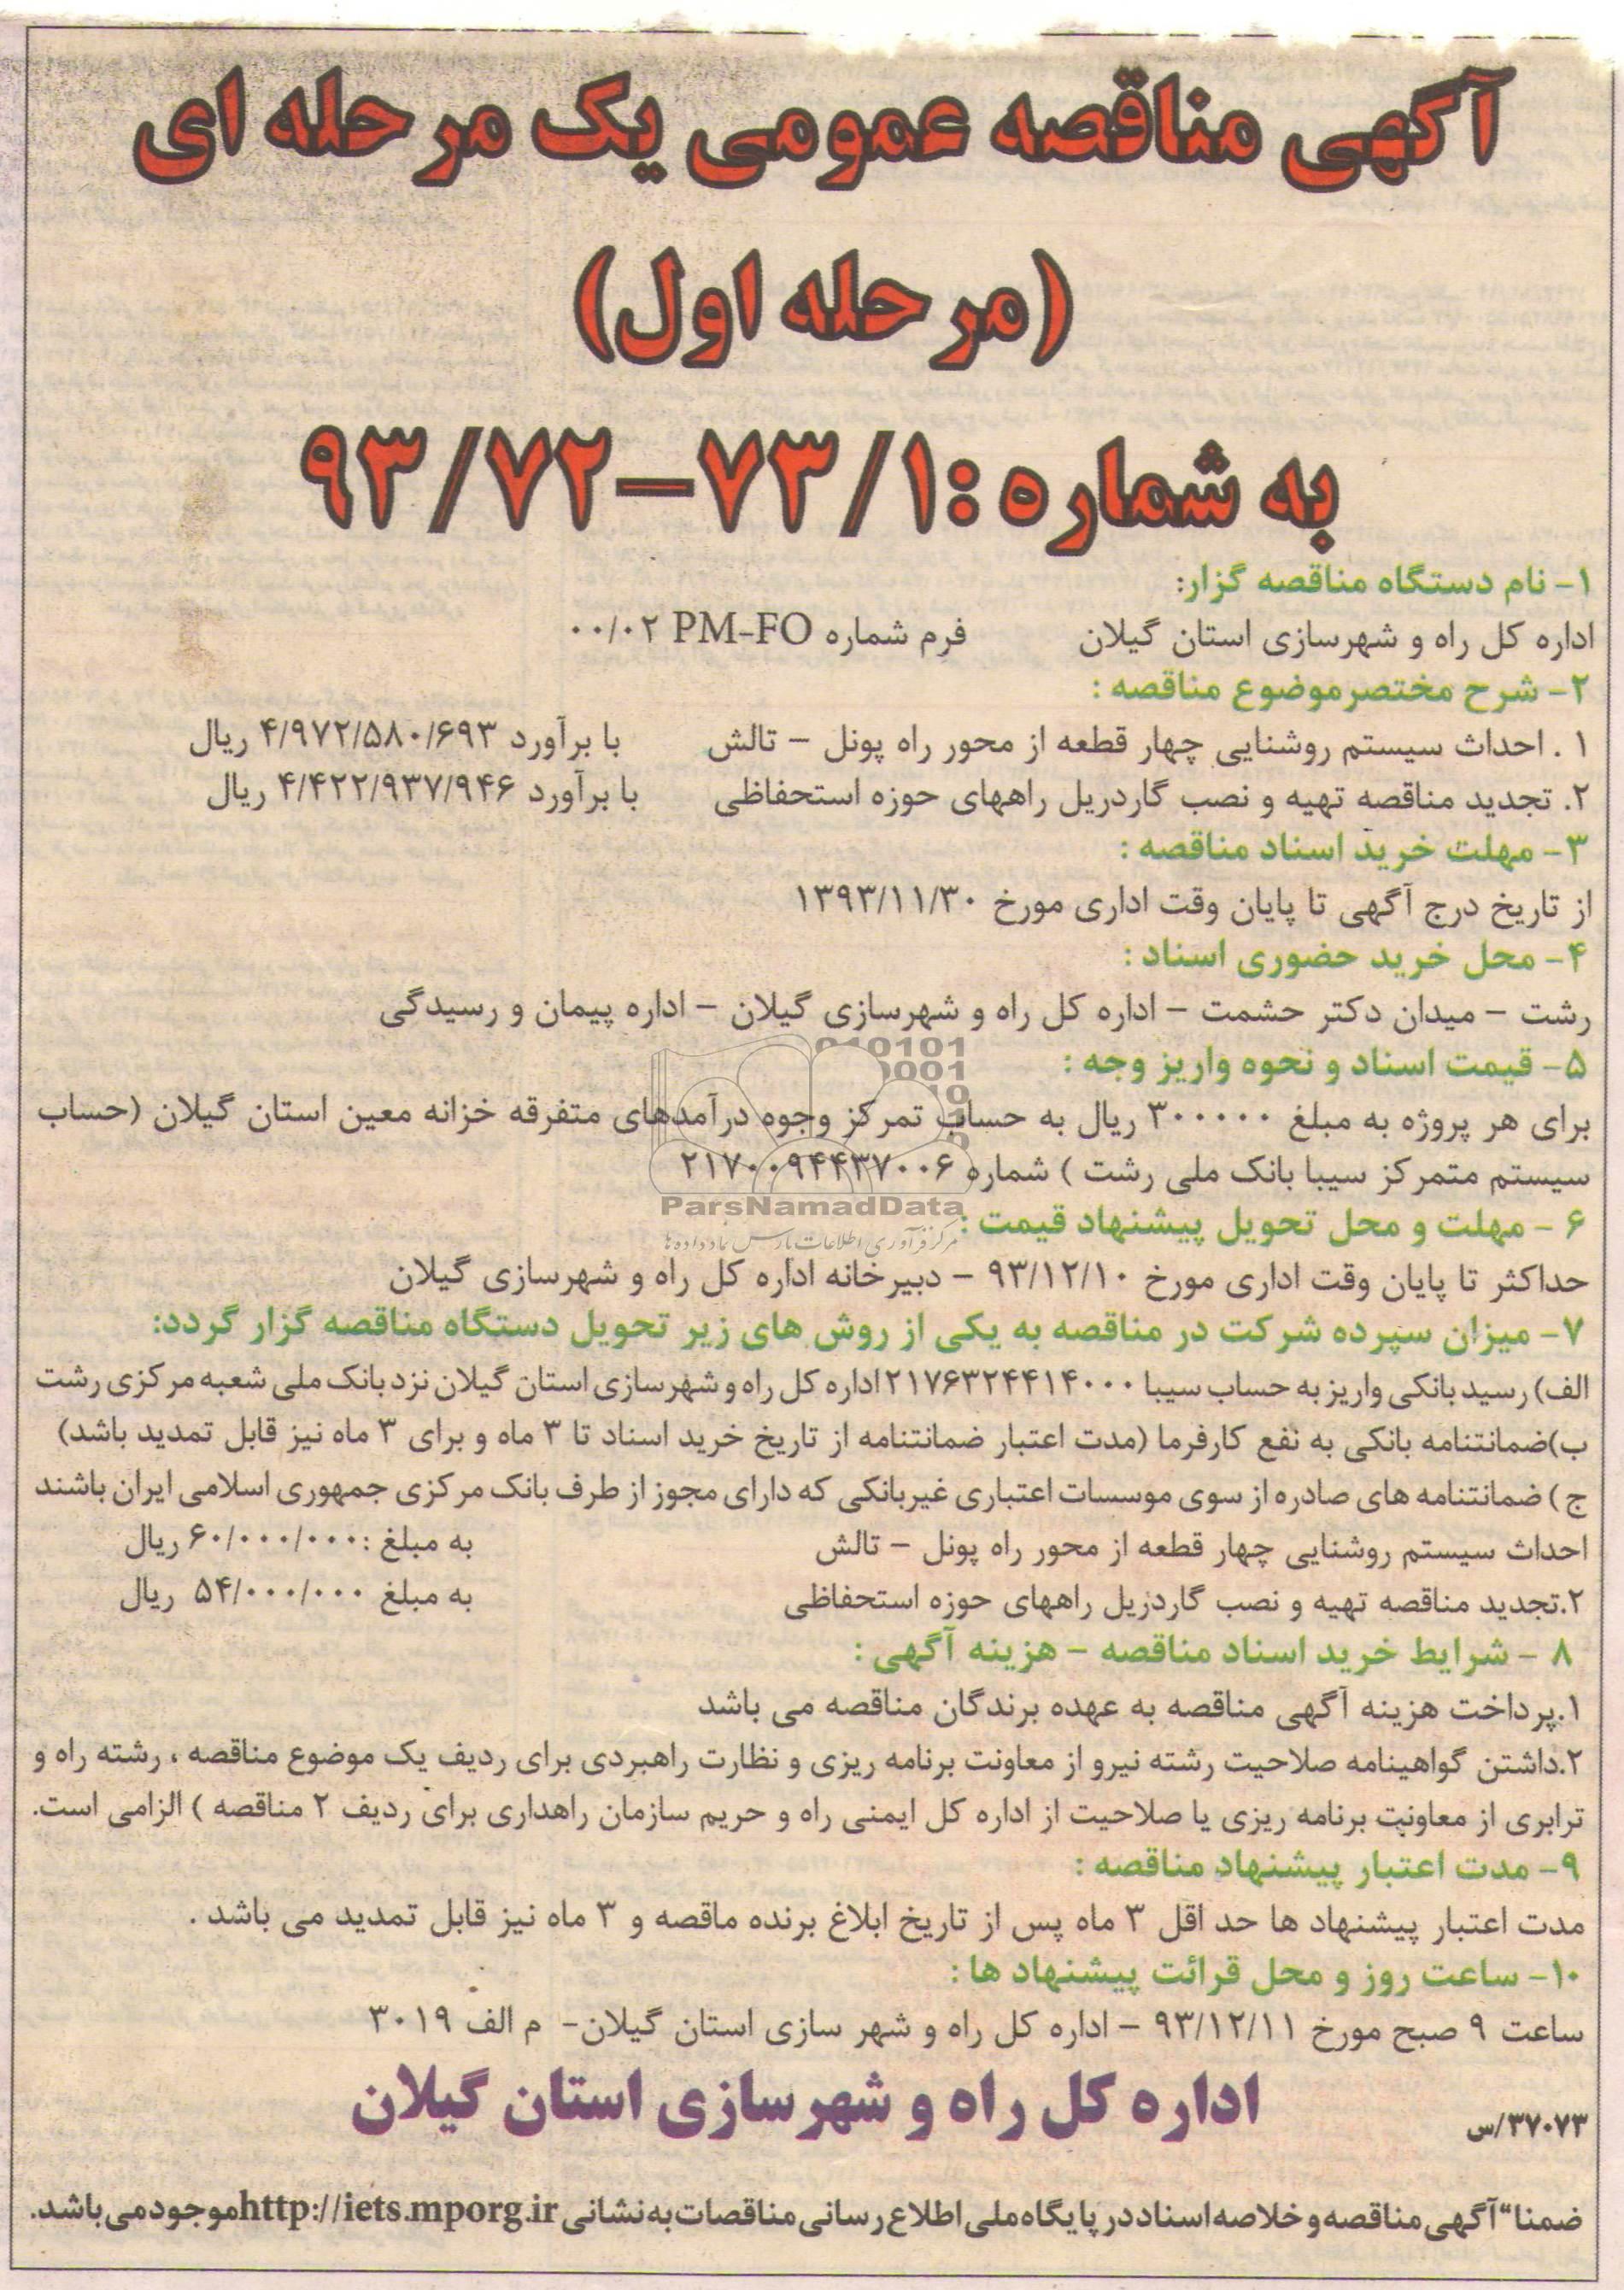 آگهی مناقصه عمومی یک مرحله ای
(مرحله اول)
به شماره :۷۳/۱-۹۳/۷۲
۱- نام دستگاه مناقصه گزار:
اداره کل راه و شهرسازی استان گیلان فرم شماره PM-FO ۰۰/۰۲
۲- شرح مختصرموضوع مناقصه :
۱ . احداث سیستم روشنایی چهار قطعه از محور راه پونل - تالش با برآورد ۴/۹۷۲/۵۸۰/۶۹۳ ریال
۲. تجدید مناقصه تهیه و نصب گاردریل راههای حوزه استحفاظی با برآورد ۴/۴۲۲/۹۳۷/۹۴۶ ریال
۳- مهلت خرید اسناد مناقصه :
از تاریخ درج آگهی تا پایان وقت اداری مورخ ۱۳۹۳/۱۱/۳۰
۴- محل خرید حضوری اسناد :
رشت - میدان دکتر حشمت - اداره کل راه و شهرسازی گیلان - اداره پیمان و رسیدگی
۵- قیمت اسناد و نحوه واریز وجه :
برای هر پروژه به مبلغ ۳۰۰۰۰۰ ریال به حساب تمرکز وجوه درآمدهای متفرقه خزانه معین استان گیلان (حساب
سیستم متمرکز سیبا بانک ملی رشت ) شماره ۲۱۷۰۰۹۴۴۳۷۰۰۶
ParsNamadData
مرکز فرآوری اطلاعات پارس نماد داده ها
۶ - مهلت و محل تحویل پیشنهاد قیمت :
حداکثر تا پایان وقت اداری مورخ ۹۳/۱۲/۱۰ - دبیرخانه اداره کل راه و شهرسازی گیلان
۷- میزان سپرده شرکت در مناقصه به یکی از روش های زیر تحویل دستگاه مناقصه گزار گردد:
الف) رسید بانکی واریز به حساب سیبا ۲۱۷۶۳۲۴۴۱۴۰۰۰ اداره کل راه و شهرسازی استان گیلان نزد بانک ملی شعبه مرکزی رشت
ب)ضمانتنامه بانکی به نفع کارفرما (مدت اعتبار ضمانتنامه از تاریخ خرید اسناد تا ۳ ماه و برای ۳ ماه نیز قابل تمدید باشد)
ج ) ضمانتنامه های صادره از سوی موسسات اعتباری غیربانکی که دارای مجوز از طرف بانک مرکزی جمهوری اسلامی ایران باشند
احداث سیستم روشنایی چهار قطعه از محور راه پونل - تالش به مبلغ :۶۰/۰۰۰/۰۰۰ ریال
۲.تجدید مناقصه تهیه و نصب گاردزیل راههای حوزه استحفاظی به مبلغ ۵۴/۰۰۰/۰۰۰ ریال
۸ - شرایط خرید اسناد مناقصه - هزینه آگهی :
۱.پرداخت هزینه آگهی مناقصه به عهده برندگان مناقصه می باشد
۲.داشتن گواهینامه صلاحیت رشته نیرو از معاونت برنامه ریزی و نظارت راهبردی برای ردیف یک موضوع مناقصه ، رشته راه و
ترابری از معاونت برنامه ریزی یا صلاحیت از اداره کل ایمنی راه و حریم سازمان راهداری برای ردیف ۲ مناقصه ) الزامی است.
۹- مدت اعتبار پیشنهاد مناقصه :
مدت اعتبار پیشنهاد ها حد اقل ۳ ماه پس از تاریخ ابلاغ برنده ماقصه و ۳ ماه نیز قابل تمدید می باشد .
۱۰- ساعت روز و محل قرائت پیشنهاد ها :
ساعت ۹ صبح مورخ ۹۳/۱۲/۱۱ - اداره کل راه و شهر سازی استان گیلان- م الف ۳۰۱۹
اداره کل راه و شهرسازی استان گیلان
۳۷۰۷۳/س
ضمنا“ آگهی مناقصه و خلاصه اسناد در پایگاه ملی اطلاع رسانی مناقصات به نشانی http://iets.mporg.ir موجود می باشد.